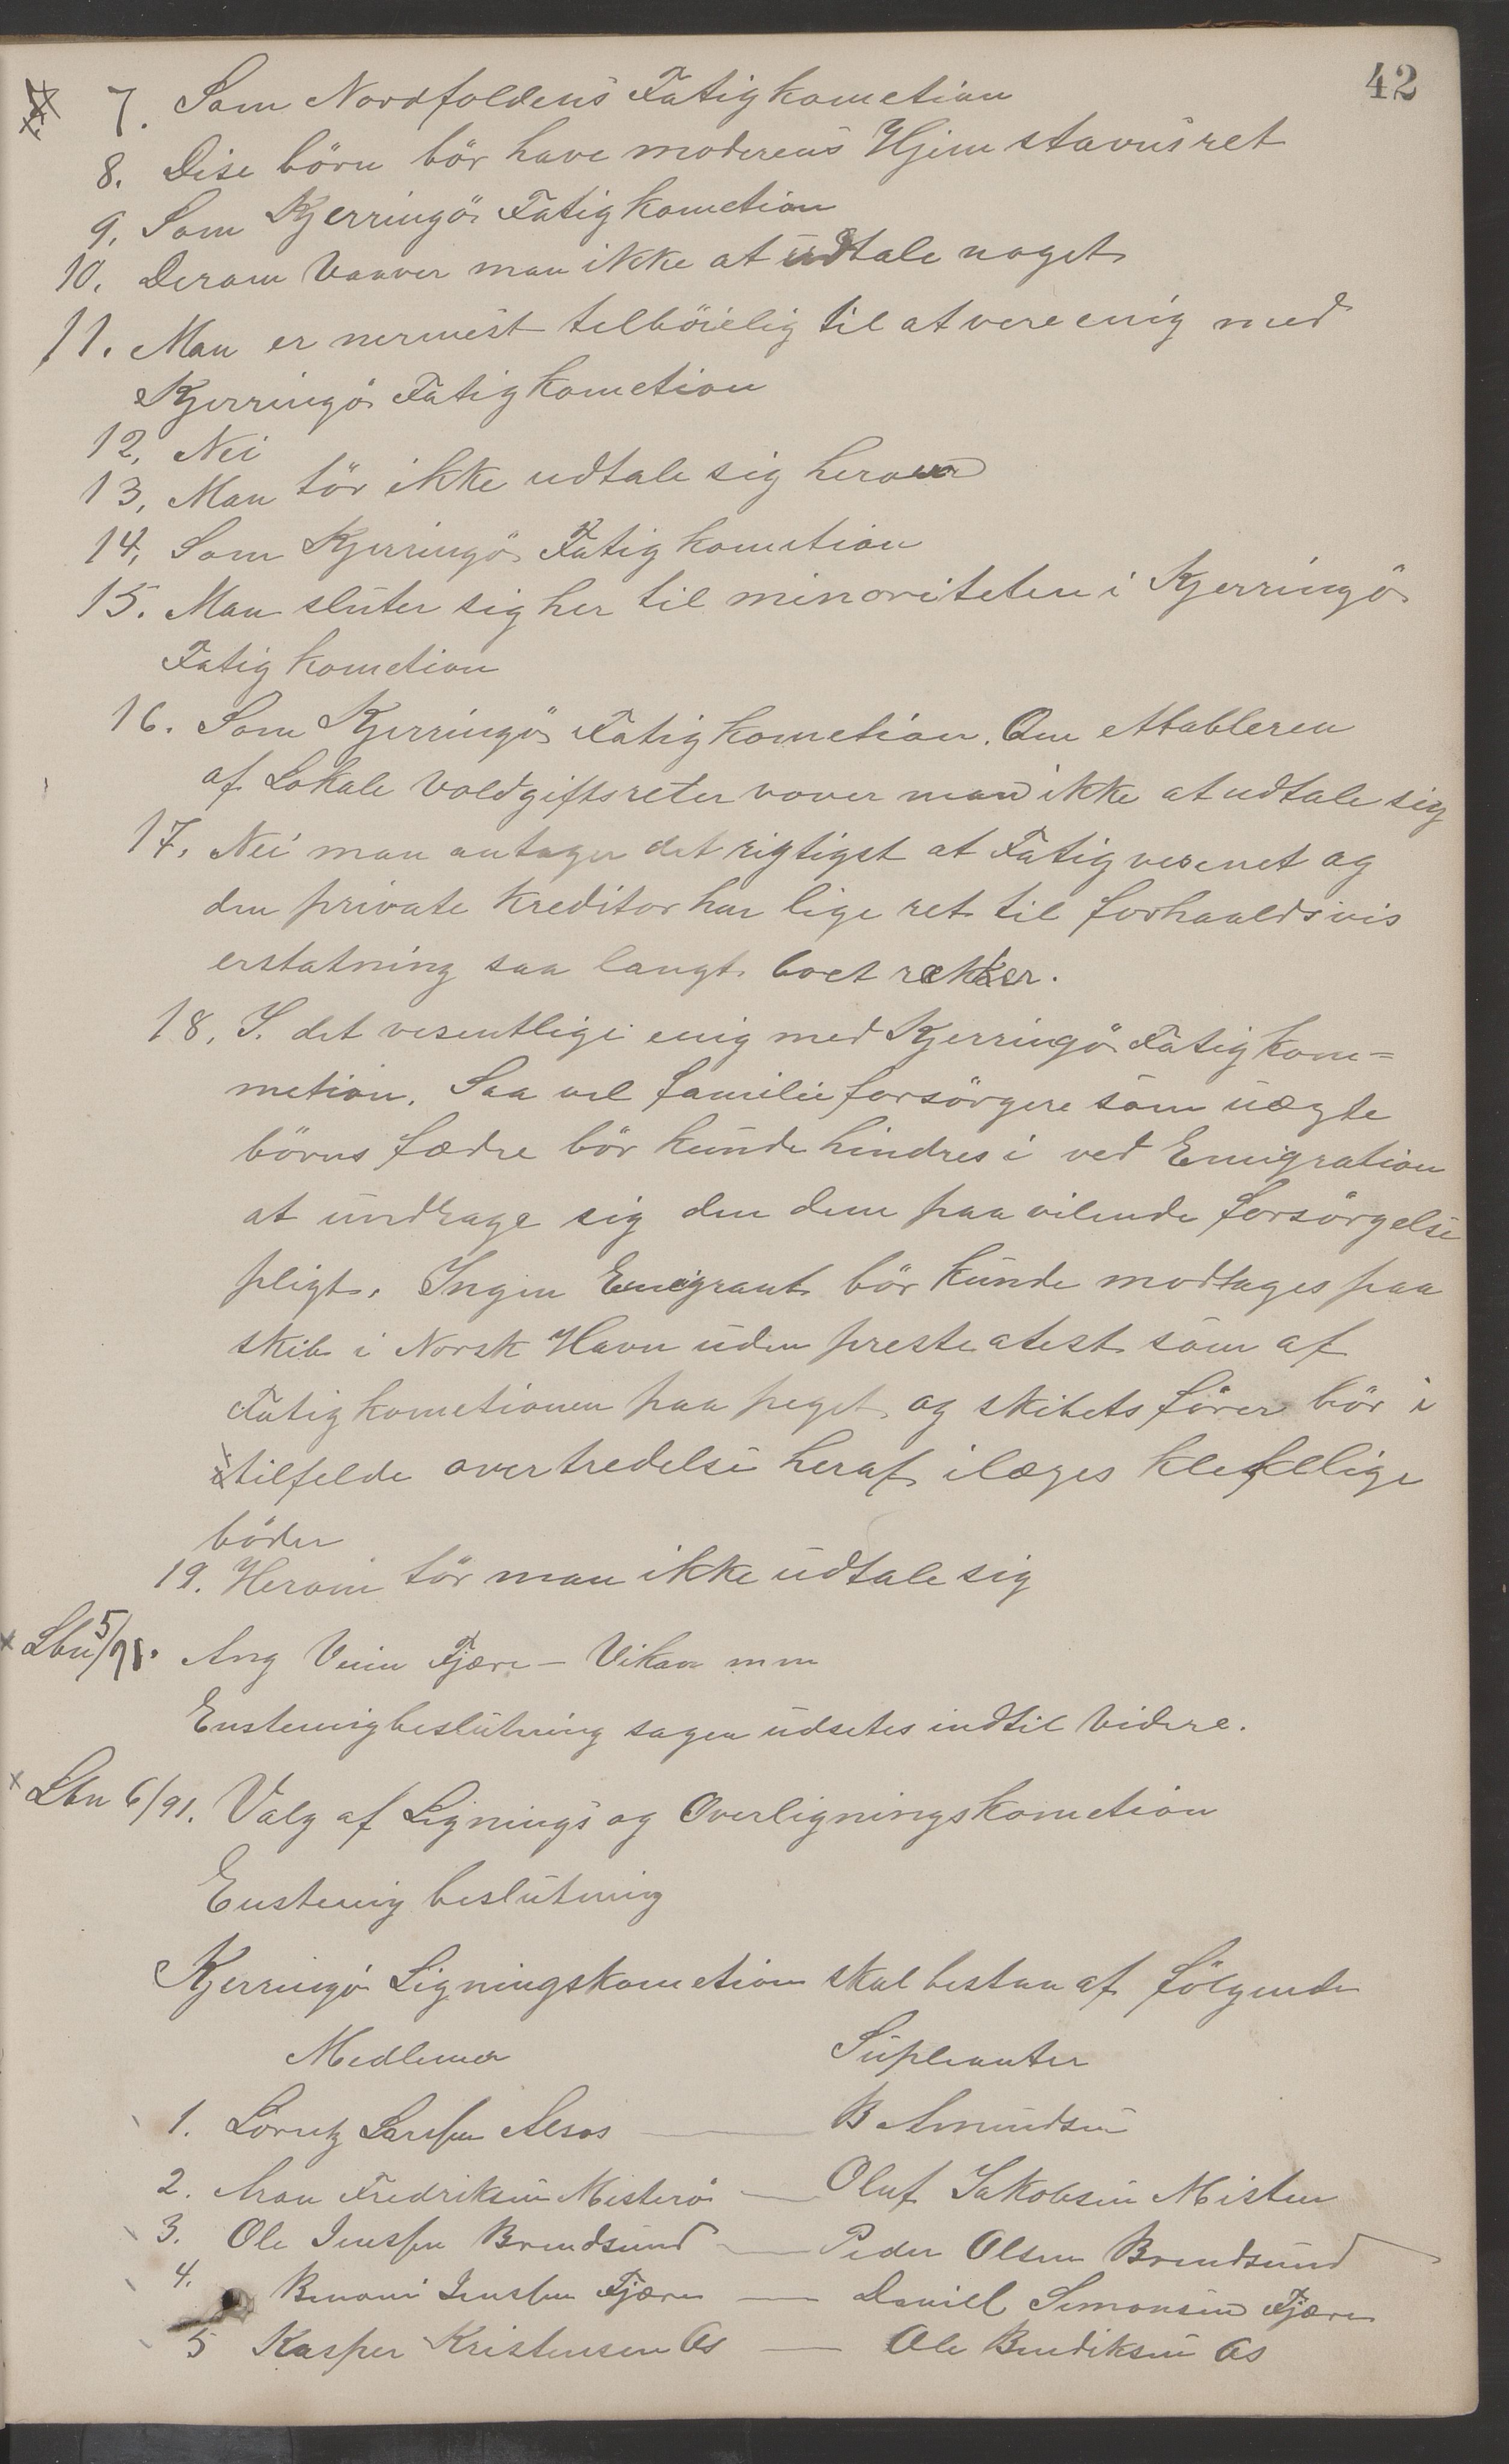 42
7. Som Nordfoldens Fatigkometion
8. Dise börn bör have moderens Hjemstavnsret
9. Som Kjerringö Fatigkometion
10. Derom vaaver man ikke at udtale noget
11. Man er nermest telböielig til at vere enig med
Kjerringö Fatigkometion
12, Nei
13, Man tör ikke udtale sig herom
14, Som Kjerringö Fatigkometion
15. Man slutter sig her til minoriteten i Kjerringö
Fatigkometion
16. Som Kjerringö Fatigkometion. Om ettableren
af Lokale Voldgiftsreter vover man ikke at udtale sig
17, Nei man antager det rigtigst at Fatigvesenet og
den private Kreditor har lige ret til forhaaldsvis
erstatning saa langt boet rekker.
18, I. det vesentlige enig med Kjerringö Fatigkom=
metion. Saa vel familieforsörgere som uægte
börns fædre bör kunde hindres i ved Emigration
at undrage sig den dem paavilende forsörgelse
pligt. Ingen Emigrant bör kunde modtages paa
skib i Norsk Havn uden presteatest som af
Fatigkometionen paapeget og skibets förer bör i
tilfelde overtredelse heraf ilæges klekkelige
böder
19. Herom tör man ikke udtale sig
x Lbn 5/91. Ang Veien Fjære - Vikan mm
Enstemigbeslutning sagen udsetes indtil Videre.
x Lbn 6/91. Valg af Lignings og Overligningskometion
Enstemig beslutning
Kjerringö Ligningskometion skal bestaa af fölgende
Medlemer Supleanter
1. Lorntz Larssen Alsos — B Amundsen
2. Aron Fredriksen Misterö — Oluf Jakobsen Misten
3. Ole Jenssen Brendsund — Peder Olsen Brendsund
4. Benoni Jenssen Fjære — Daniel Simonsen Fjære
5 Kasper Kristensen Os — Ole Bendiksen Os